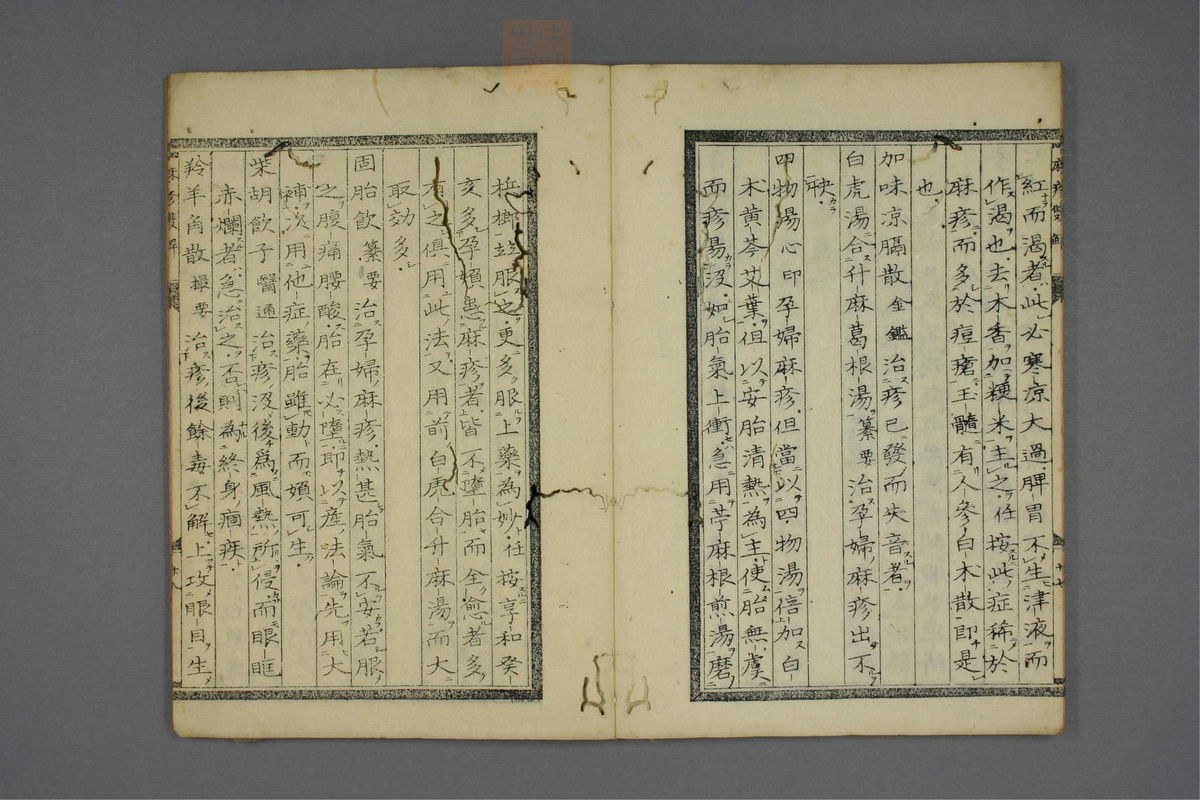 紅而渇者此必寒凉大過脾胃不生津液而
作渇也去木香加粳米主之任按此症稀於
麻疹而多於痘瘡玉髓有人參白木散即是
也
加味凉膈散金鑑治疹已發而失音者
白虎湯合升麻葛根湯纂要治孕婦麻疹出不
快
四物湯心印孕婦麻疹但當以四物湯倍加白
木黄芩艾葉但以安胎清熱為主使胎無虞
而疹易沒如胎氣上衝急用苧麻根煎湯磨
檳榔並服之更多服上藥為妙任按享和癸
亥多孕婦患麻疹者皆不墮胎而全愈者多
有之俱用此法又用前白虎合升麻湯而大
取効多
固胎飲纂要治孕婦麻疹熱甚胎氣不安若服
之腹痛腰酸胎在必墮即以産法論先用大
補次用他症藥胎雖動而婦可生
柴胡飲子醫通治疹没後為風熱所侵而眼眶
赤爛者急治之否則為終身痼疾
羚羊角散撮要治疹後餘毒不解上攻眼目生